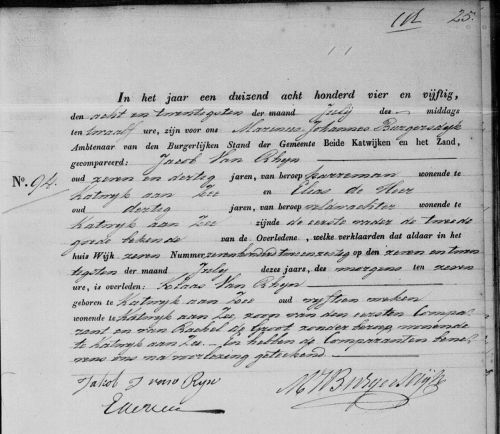 25.
In het jaar een duizend acht honderd vier en vijftig,
den acht en twentigsten der maand July des middags
ten twaalf ure, zijn voor ons Marinus Johannes Burgersdyk
Ambtenaar van den Burgerlijken Stand der Gemeente Beide Katwijken en het Zand,
gecompareerd: Jacob Van Rhyn
No. 94. oud zeven en dertig jaren, van beroep karreman wonende te
Katwyk aan Zee en Elias de Heer
oud dertig jaren, van beroep wonende te
Katwyk aan Zee zijnde de eerste vader de tweede
goede bekende van de Overledene, welke verklaarden dat aldaar in het
huis Wijk zeven Nummer op den zeven en twen
tigsten der maand July dezes jaars, des morgens ten zeven
ure, is overleden: Klaas Van Rhyn
geboren te Katwyk aan Zee oud vyftien weken
wonende te Katwyk aan Zee, zoon van den eersten Compa
rant en van Rachel de Groot zonder beroep wonende
te Katwyk aan Zee. En hebben de Comparanten bene
vens ons na voorlezing geteekend.
Jakob van Ryn
MJBurgersdijk